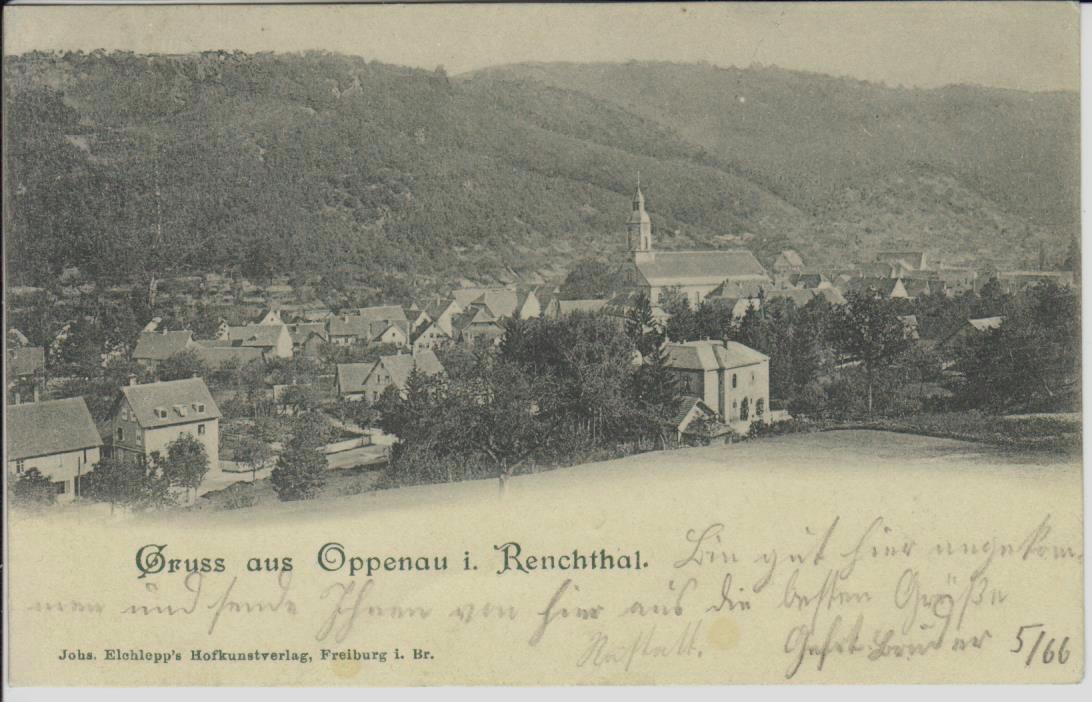 Gruss aus Oppenau i. Renchthal. Bin gut hier angekom
men und sende Ihnen von hier aus die besten Grüße
Johs. Elchlepp's Hofkunstverlag, Freiburg i. Br.
Rastatt. Bruder 5/66